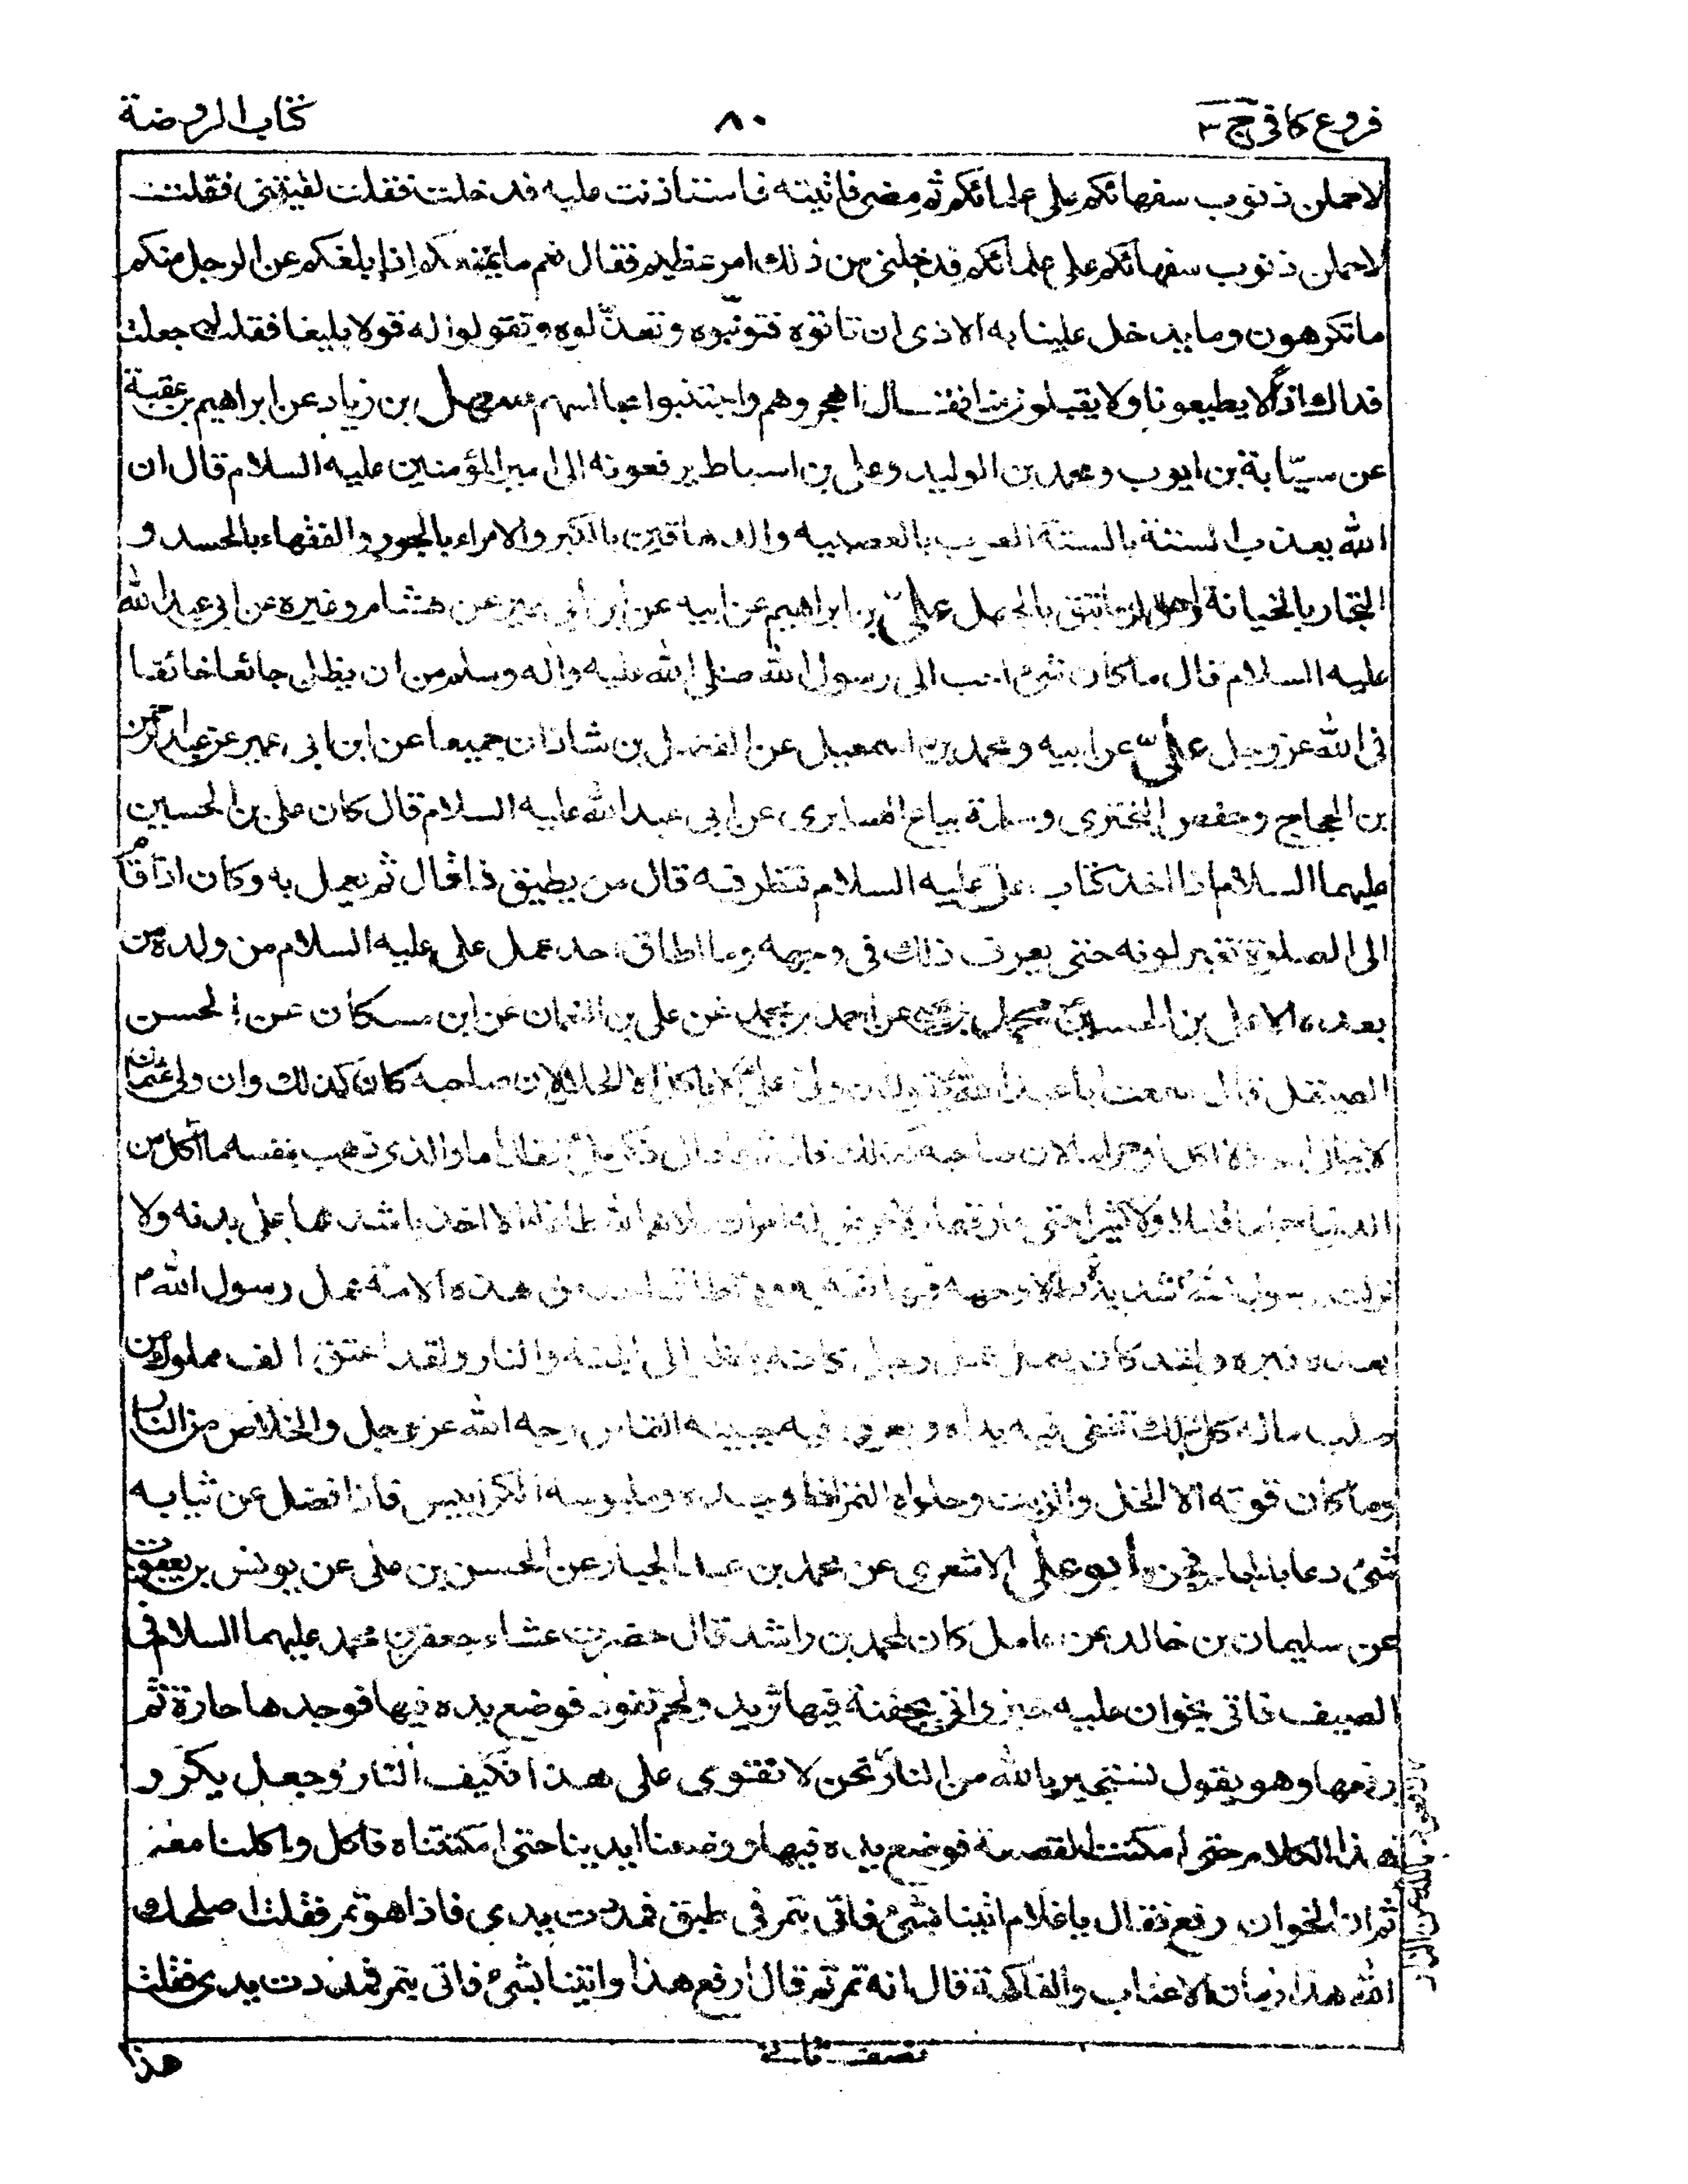 فروع كافى ج ٣
٨٠
كتاب الروضة
لاحملن ذنوب سفهائكم على علمائكم ثم مضى فاتيته فاستاذنت عليه فدخلت فقلت لقيتنى فقلت
لاحملن ذنوب سفهائكم على علمائكم فدخلنى من ذلك امر عظيم فقال نعم ما يمنعكم اذا بلغكم عن الرجل منكم
ما تكرهون وما يدخل علينا به الاذى ان تاتوه فتونّبوه وتعذّلوه وتقولوا له قولا بليغا فقلت جعلت
فداك اذاً لا يطيعونا ولا يقبلون منا فقال اهجروهم واجتنبوا مجالسهم سهل بن زياد عن ابراهيم بن عقبة
عن سيّابة بن ايوب ومحمد بن الوليد وعلى بن اسباط يرفعونه الى امير المؤمنين عليه السلام قال ان
الله يعذب الستة بالستة العرب بالعصبيه والدهاقين بالكبر والامراء بالجور والفقهاء بالحسد و
التجار بالخيانة واهل الرساتيق بالجهل علىّ بن ابراهيم عن ابيه عن ابن أبي عمير عن هشام وغيره عن ابي عبد الله
عليه السلام قال ما كان شئ احب الى رسول الله صلى الله عليه واله وسلم من ان يظل جائعا خائفا
فى الله عز وجل علىّ عن ابيه ومحمد بن اسمعيل عن الفضل بن شاذان جميعا عن ابن ابي عمير عن عبد الرحمن
بن الحجاج وحفص البخترى وسلمة بياع السابرى عن ابى عبد الله عليه السلام قال كان على بن الحسين
عليهما السلام اذا اخذ كتاب على عليه السلام فنظر فيه قال من يطيق ذا قال ثم يعمل به وكان اذا قام
الى الصلوة تغير لونه حتى يعرف ذلك فى وجهه وما اطاق احد عمل على عليه السلام من ولده من
بعده الا على بن الحسين محمد بن يحيى عن احمد بن محمد عن على بن النعمان عن ابن مسكان عن الحسن
الصيقل قال سمعت ابا عبد الله يقول ان ولى على لا ياكل الا الحلال لان صاحبه كان كذلك وان ولى عثمان
لا يبالى احلالا اكل او حراما لان صاحبه كذلك قال ثم عاد الى ذكر على فقال اما والذى ذهب بنفسه ما اكل من
الدنيا حراما قليلا ولا كثيرا حتى فارقها ولا عرض له امران كلاهما لله طاعة الا اخذ باشدهما على بدنه ولا
نزلت برسول الله شديدة قط الا وجهه فيها ثقة به وما اطاق احد من هذه الامة عمل رسول الله م
بعده غيره ولقد كان يعمل عمل رجل كانه ينظر الى الجنة والنار ولقد اعتق الف مملوك من
صلب ماله كل ذلك تحفى فيه يداه ويعرق فيه جبينه التماس وجه الله عز وجل والخلاص من النار
وما كان قوته الا الخل والزيت وحلواه التمر اذا وجده وملبوسه الكرابيس فاذا فضل عن ثيابه
شئ دعا بالجلم فجزه أبو على الاشعرى عن محمد بن عبد الجبار عن الحسن بن على عن يونس بن يعقوب
عن سليمان بن خالد عن عامل كان لمحمد بن راشد قال حضرت عشاء جعفر بن محمد عليهما السلام فى
الصيف فاتى بخوان عليه خبز واتى بجفنة فيها ثريد ولحم تفور فوضع يده فيها فوجدها حارة ثم
رفعها وهو يقول نستجير بالله من النار نحن لا نقوى على هذا فكيف النار وجعل يكرر
هذا الكلام حتى امكنت القصعة فوضع يده فيها ووضعنا ايدينا حتى امكنتناه فاكل واكلنا معه
ثم ان الخوان رفع فقال يا غلام اتينا بشئ فاتى بتمر فى طبق فمددت يدى فاذا هو تمر فقلت اصلحك
الله هذا زمان الاعناب والفاكهة قال انه تمر ثم قال ارفع هذا واتينا بشئ فاتى بتمر فمددت يدى فقلت
هذا